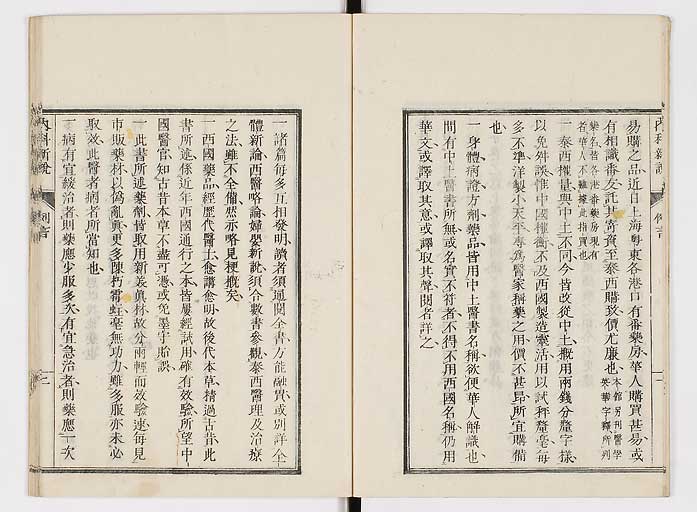 易購之品近日上海粵東各港口有番藥房華人購買甚易或
有相識番友託其寄資至泰西購致價尤廉也本館另刊醫學英華字釋所列
藥名皆各港番藥房現有者華人不難據此指買也
一泰西權量與中土不同今皆改從中土概用兩錢分釐字樣
以免舛誤惟中國權衡不及西國製造靈活用以試秤釐毫每
多不準洋製小天平專爲醫家稱藥之用價不甚昂所宜購備
也
一身體病證方劑藥品皆用中土醫書名稱欲便華人解識也
間有中土醫書所無或名實不符者不得不用西國名稱仍用
華文或譯取其意或譯取其聲閱者詳之
內科新說
例言
一諸篇每多互相發明讀者須通閱全書方能融貫或別詳全
體新論西醫略論婦嬰新說須合數書參觀泰西醫理及治療
之法雖不全備然亦略見梗槪矣
一西國藥品經歷代醫士愈講愈明故後代本草精過古昔此
書所述係近年西國通行之本皆屢經試用確有效驗所望中
國醫官知古昔本草不盡可憑或免墨守貽誤
一此書所述藥劑皆取用新差眞材故分兩輕而效驗速每見
市販藥材以僞亂眞更多陳朽霉蛀毫無功力雖多服亦未必
取效此醫者病者所當知也
一病有宜緩治者則藥應少服多次有宜急治者則藥應一次
內科新說
例言
二